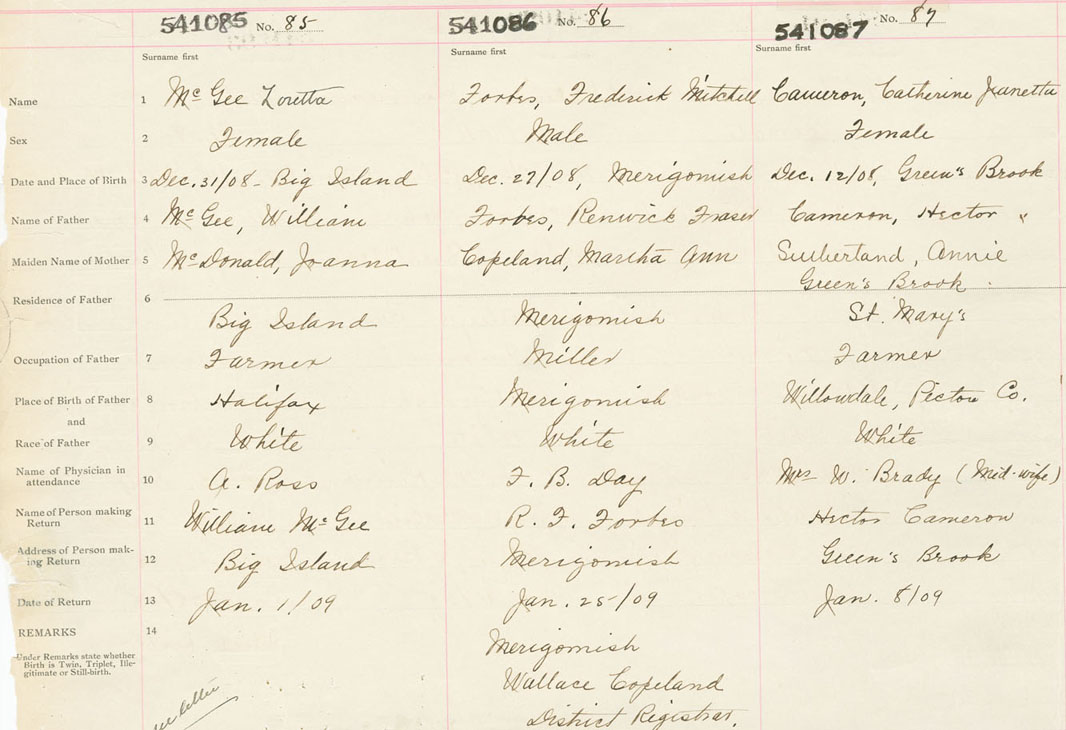 541085 No. 85 541086 No. 86 541087 No. 87
Surname first Surname first Surname first
Name 1 McGee Loretta Forbes, Frederick Mitchell Cameron, Catherine Jeanetta
Sex 2 Female Male Female
Date and Place of Birth 3 Dec. 31/08 - Big Island Dec. 27/08, Merigomish Dec. 12/08, Green's Brook
Name of Father 4 McGee, William Forbes, Renwick Fraser Cameron, Hector "
Maiden Name of Mother 5 McDonald, Joanna Copeland, Martha Ann Sutherland, Annie
Green's Brook
Residence of Father 6 Big Island Merigomish St. Mary's
Occupation of Father 7 Farmer Miller Farmer
Place of Birth of Father 8 Halifax Merigomish Willowdale, Pictou Co.
and
Race of Father 9 White White White
Name of Physician in
attendance 10 A. Ross F. B. Day Mrs W. Brady (Mid-wife)
Name of Person making
Return 11 William McGee R. F. Forbes Hector Cameron
Address of Person mak-
ing Return 12 Big Island Merigomish Green's Brook
Date of Return 13 Jan. 1/09 Jan. 25/09 Jan. 8/09
REMARKS 14
Under Remarks state whether
Birth is Twin, Triplet, Ille-
gitimate or Still-birth.
Merigomish
Wallace Copeland
District Registrar.